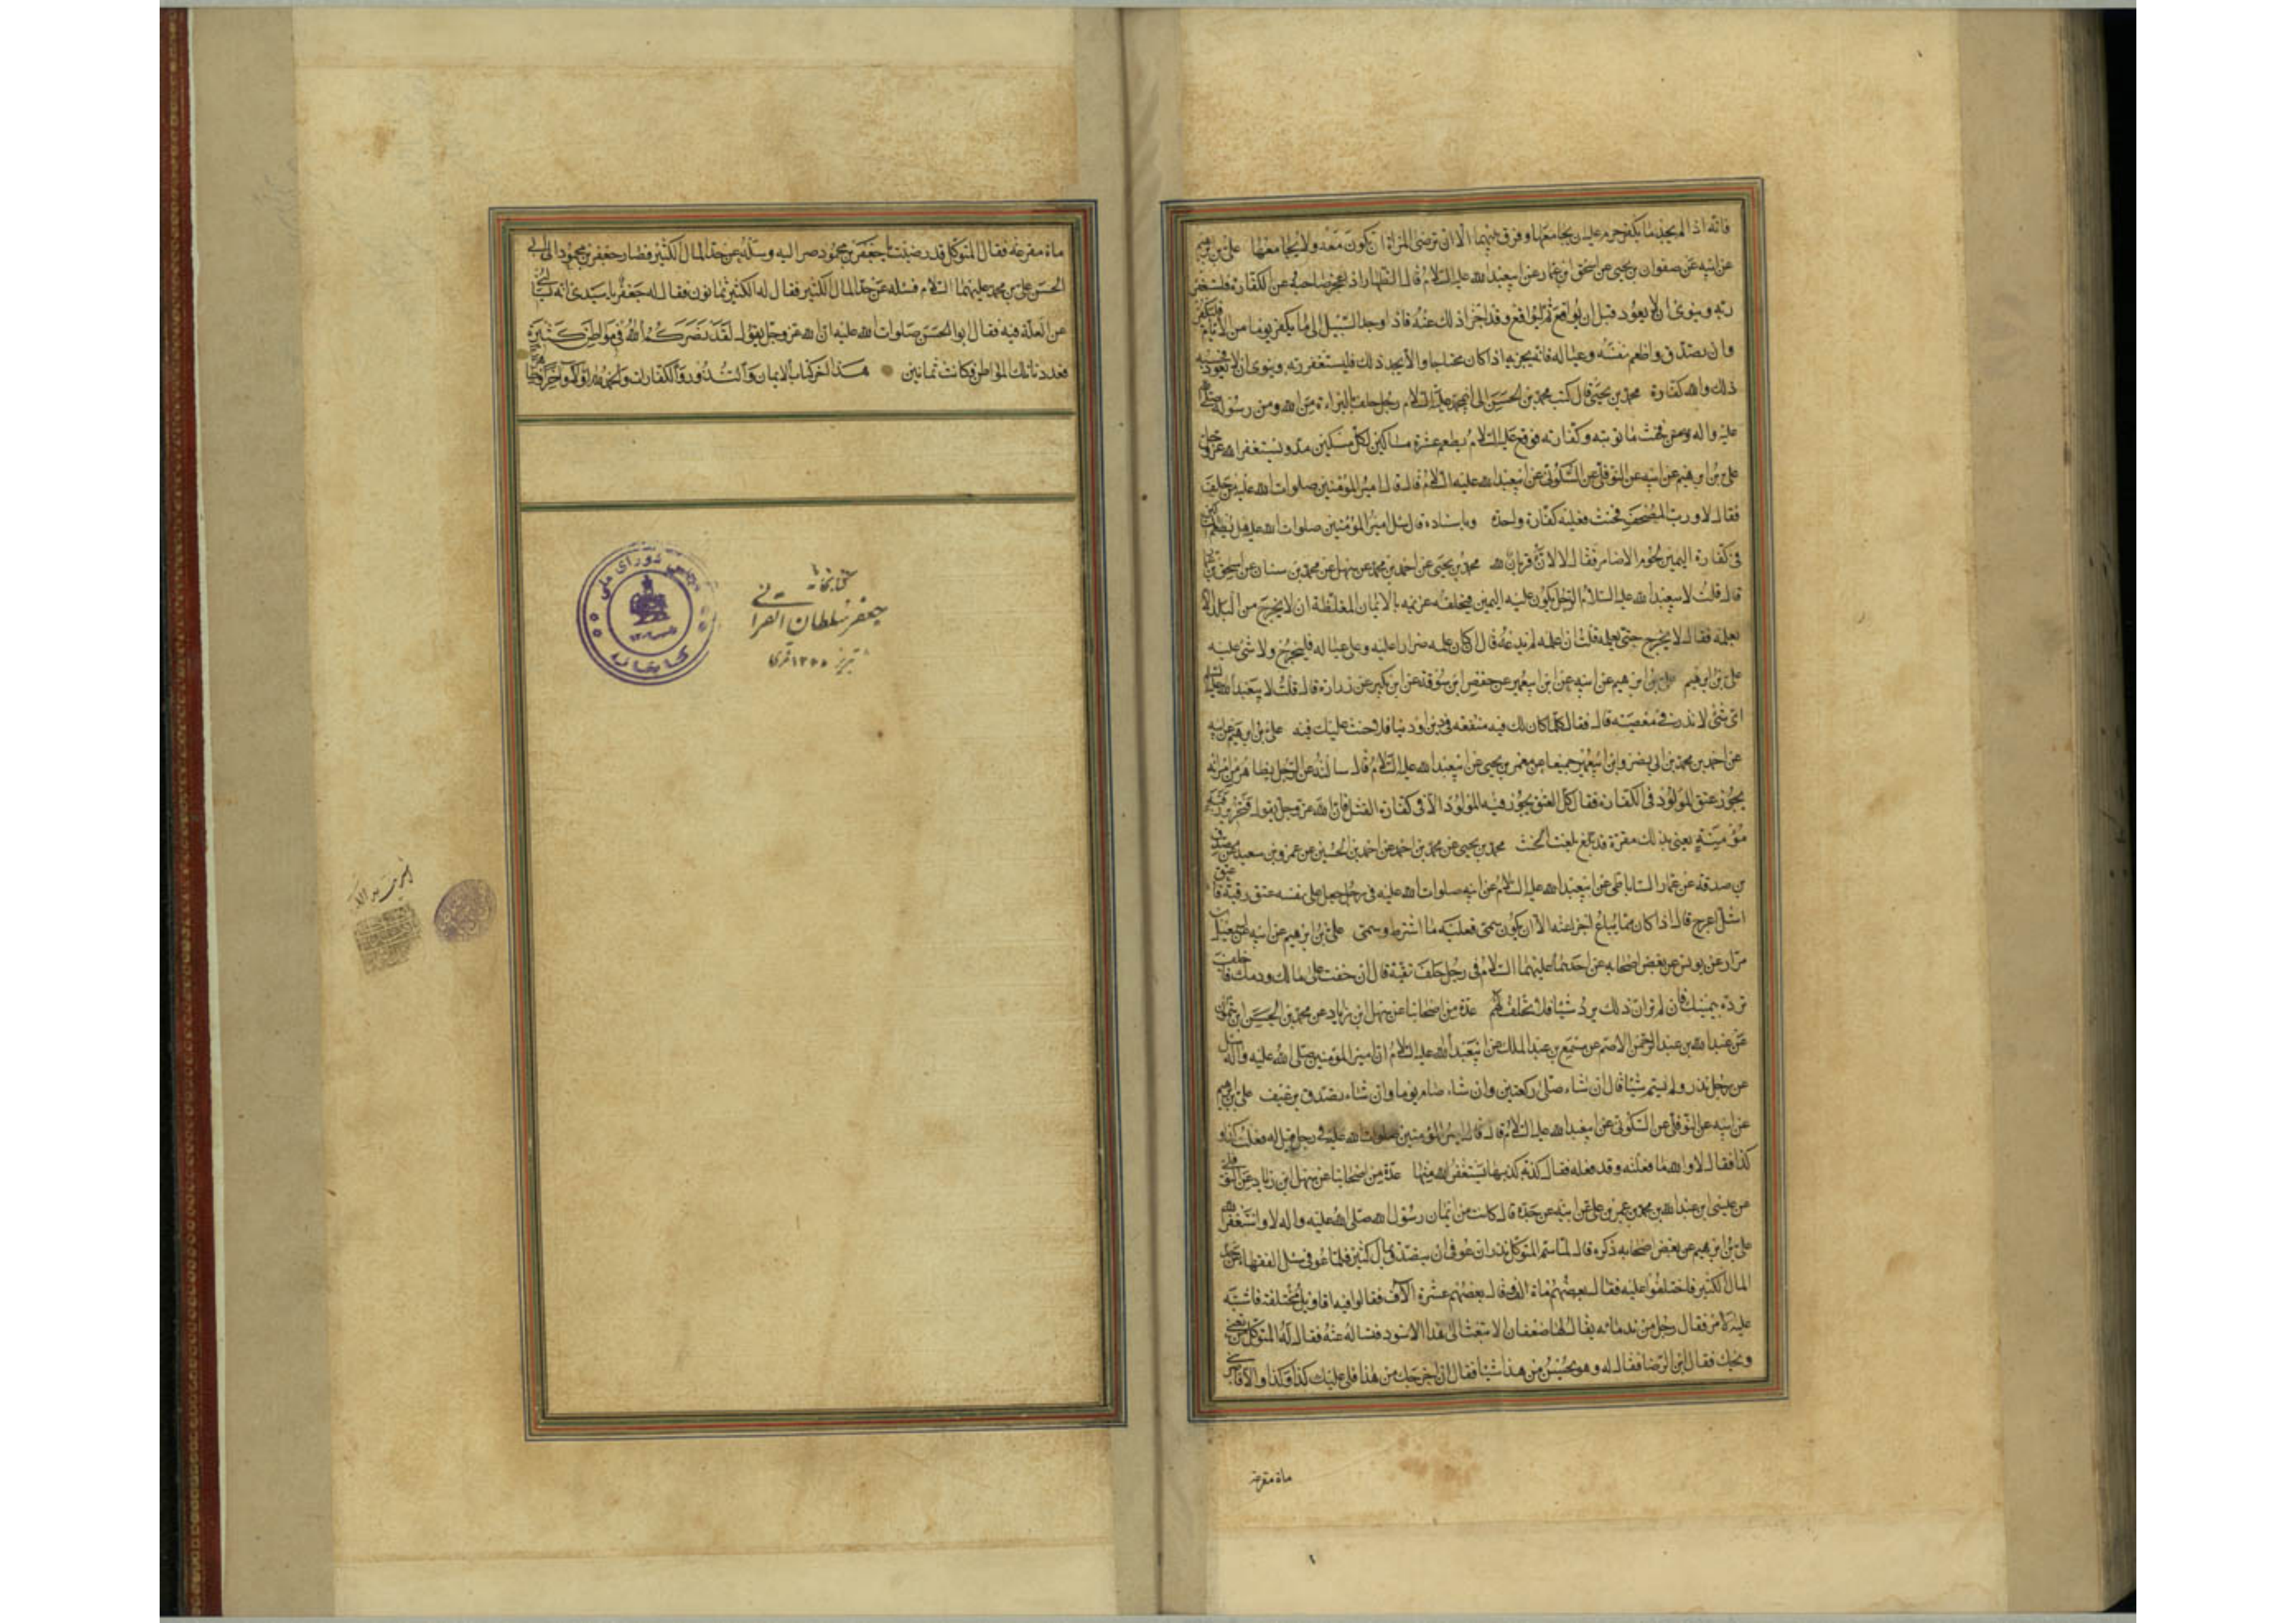 فانه اذا لم يجد ما يكفر حرم عليه ان يجامعها وفرق بينهما الا ان ترضى المراة ان يكون معه ولا يجامعها علي بن ابرهيم
عن ابيه عن صفوان بن يحيى عن اسحق ابن عمار عن ابيعبد الله عليه السلام قال الظهار اذا عجز صاحبه عن الكفارة فليستغفر
ربه وينوى ان لا يعود قبل ان يواقع ثم ليواقع وقد اجزا ذلك عنه فاذا وجد السبيل الى ما يكفر يوما من الايام فليكفر
وان تصدق واطعم نفسه وعياله فانه يجزيه اذا كان محتاجا والا يجد ذلك فليستغفر ربه وينوى ان لا يعود فحسبه
ذلك والله كفارة محمد بن يحيى قال كتب محمد بن الحسن الى ابي محمد عليه السلام رجل حلف بالبراءة من الله ومن رسوله صلى الله
عليه واله وسلم فحنث ما توبته وكفارته فوقع عليه السلام يطعم عشرة مساكين لكل مسكين مد ويستغفر الله عز وجل
علي بن ابرهيم عن ابيه عن النوفلي عن السكوني عن ابيعبد الله عليه السلام قال قال امير المؤمنين صلوات الله عليه من حلف
فقال لا ورب المصحف فحنث فعليه كفارة واحدة وباسناده قال سئل امير المؤمنين صلوات الله عليه هل يطعم المساكين
في كفارة اليمين لحوم الاضاحي فقال لا لانه قربان لله محمد بن يحيى عن احمد بن محمد عن سهل عن محمد بن سنان عن اسحق بن عمار
قال قلت لابيعبد الله عليه السلام الرجل يكون عليه اليمين فيحلفه غريمه بالايمان المغلظة ان لا يخرج من البلد الا
بعلمه فقال لا يخرج حتى يعلمه قلت ان اعلمه لم يدعه قال ان كان علمه ضرارا عليه وعلى عياله فليخرج ولا شئ عليه
علي بن ابرهيم علي بن ابرهيم عن ابيه عن ابن ابيعمير عن حفص ابن سوقة عن ابن بكير عن زرارة قال قلت لابيعبد الله عليه السلام
اى شئ لا نذر في معصيته قال فقال كلما كان لك فيه منفعة في دين او دنيا فلا حنث عليك فيه علي بن ابرهيم عن ابيه
عن احمد بن محمد بن ابي نصر وابن ابيعمير جميعا عن معمر بن يحيى عن ابيعبد الله عليه السلام قال سالته عن الرجل يظاهر من امراته
يجوز عتق المولود في الكفارة فقال كل العتق يجوز فيه المولود الا في كفارة القتل فان الله عز وجل يقول فتحرير رقبة
مؤمنة يعنى بذلك مقرة قد بلغت الحنث محمد بن يحيى عن محمد بن احمد عن احمد بن الحسين عن عمرو بن سعيد عن مصدق
بن صدقة عن عمار الساباطي عن ابيعبد الله عليه السلام عن ابيه صلوات الله عليه في رجل جعل على نفسه عتق رقبة فاعتق
اشل اعرج قال اذا كان مما يباع اجزا عنه الا ان يكون سمى فعليه ما اشترط وسمى علي بن ابرهيم عن ابيه عن اسمعيل بن
مرار عن يونس عن بعض اصحابه عن احدهما عليهما السلام في رجل حلف تقية قال ان خفت على مالك ودمك فاحلف
ترده بيمينك فان لم تر ان ذلك يرد شيئا فلا تحلف لهم عدة من اصحابنا عن سهل ابن زياد عن محمد بن الحسن ابن شمون
عن عبد الله بن عبد الرحمن الاصم عن مسمع بن عبد الملك عن ابيعبد الله عليه السلام ان امير المؤمنين صلى الله عليه واله سئل
عن رجل نذر ولم يسم شيئا قال ان شاء صلى ركعتين وان شاء صام يوما وان شاء تصدق برغيف علي بن ابرهيم
عن ابيه عن النوفلي عن السكوني عن ابيعبد الله عليه السلام قال قال امير المؤمنين صلوات الله عليه في رجل قيل له فعلت كذا و
كذا فقال لا والله ما فعلته وقد فعله فقال كذبة كذبها يستغفر الله منها عدة من اصحابنا عن سهل ابن زياد عن النوفلي
عن عيسى ابن عبد الله بن محمد بن عمر بن علي عن ابيه عن جده قال كانت من ايمان رسول الله صلى الله عليه واله لا واستغفر الله
علي بن ابرهيم عن بعض اصحابه ذكره قال لما سم المتوكل نذر ان عوفي ان يتصدق بمال كثير فلما عوفي سئل الفقهاء عن حد
المال الكثير فاختلفوا عليه فقال بعضهم ماة الف وقال بعضهم عشرة الاف فقالوا فيه اقاويل مختلفة فاشتبه
عليه الامر فقال رجل من ندمائه يقال له صفعان الا تبعث الى هذا الاسود فتساله عنه فقال له المتوكل من تعنى
ويحك فقال ابن الرضا فقال له وهو يحسن من هذا شيئا فقال ان اخرجك من هذا فلي عليك كذا وكذا والا فاضربني
ماة مقرعة
ماة مقرعة فقال المتوكل قد رضيت يا جعفر بن محمود صر اليه وسله عن حد المال الكثير فصار جعفر بن محمود الى ابي
الحسن علي بن محمد عليهما السلام فسئله عن حد المال الكثير فقال له الكثير ثمانون فقال له جعفر يا سيدى انه يسالني
عن العلة فيه فقال ابو الحسن صلوات الله عليه ان الله عز وجل يقول لقد نصركم الله في مواطن كثيرة
فعددنا تلك المواطن فكانت ثمانين هذا اخر كتاب الايمان والنذور والكفارات والحمد لله اولا واخرا
كتابخانه
جعفر سلطان القرائي
تبريز ١٣٥٥ قمرى
مجلس شوراى ملى
كتابخانه